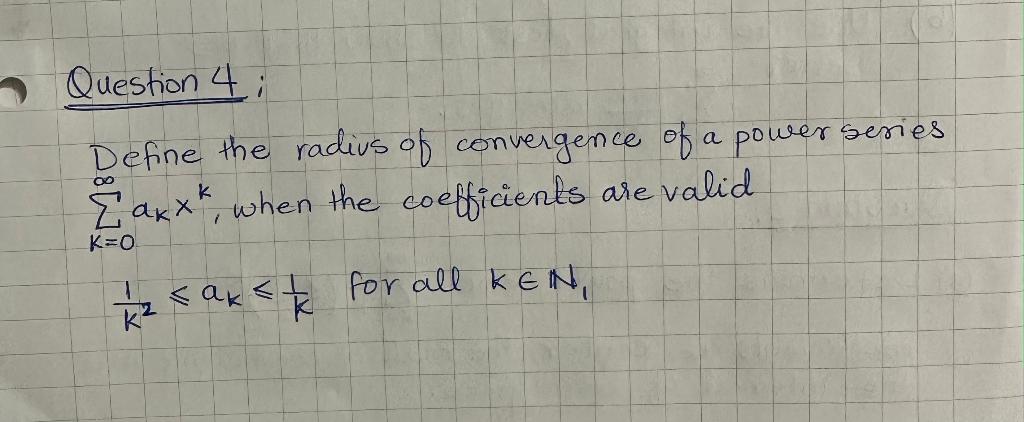 Question 4;
Define the radius of convergence of a power series
∞
∑ aₖxᵏ, when the coefficients are valid
K=0
1/k² ≤ aₖ ≤ 1/k for all k ∈ ℕ,